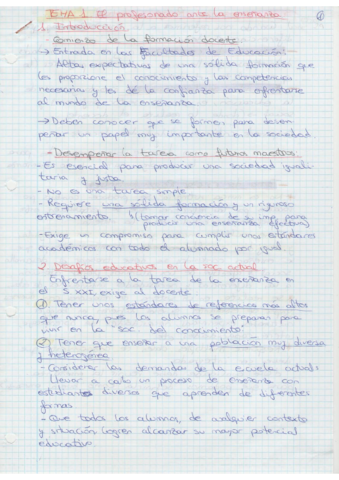 TEMA 1. El profesorado ante la enseñanza
1. Introducción
Comienzo de la formación docente
→ Entrada en las Facultades de Educación:
Altas expectativas de una sólida formación que
les proporcione el conocimiento y las competencias
necesarias y les dé la confianza para enfrentarse
al mundo de la enseñanza.
→ Deben conocer que se forman para desem
peñar un papel muy importante en la sociedad
- Desempeñar la tarea como futuros maestros
- Es esencial para producir una sociedad iguali-
taria y justa
- No es una tarea simple
- Requiere una sólida formación y un riguroso
entrenamiento. (tomar conciencia de su imp. para
producir una enseñanza efectiva)
- Exige un compromiso para cumplir unos estándares
académicos con todo el alumnado por igual
2. Desafíos educativos en la soc. actual
Enfrentarse a la tarea de la enseñanza, en
el S. XXI, exige al docente
1 Tener unos estándares de referencia más altos
que nunca, pues los alumnos se preparan para
vivir en la "soc. del conocimiento"
2 Tener que enseñar a una población muy diversa
y heterogénea
- Considerar las demandas de la escuela actual:
llevar a cabo un proceso de enseñanza con
estudiantes diversos que aprenden de diferentes
formas
- Que todos los alumnos, de cualquier contexto
y situación logren alcanzar su mayor potencial
educativo.